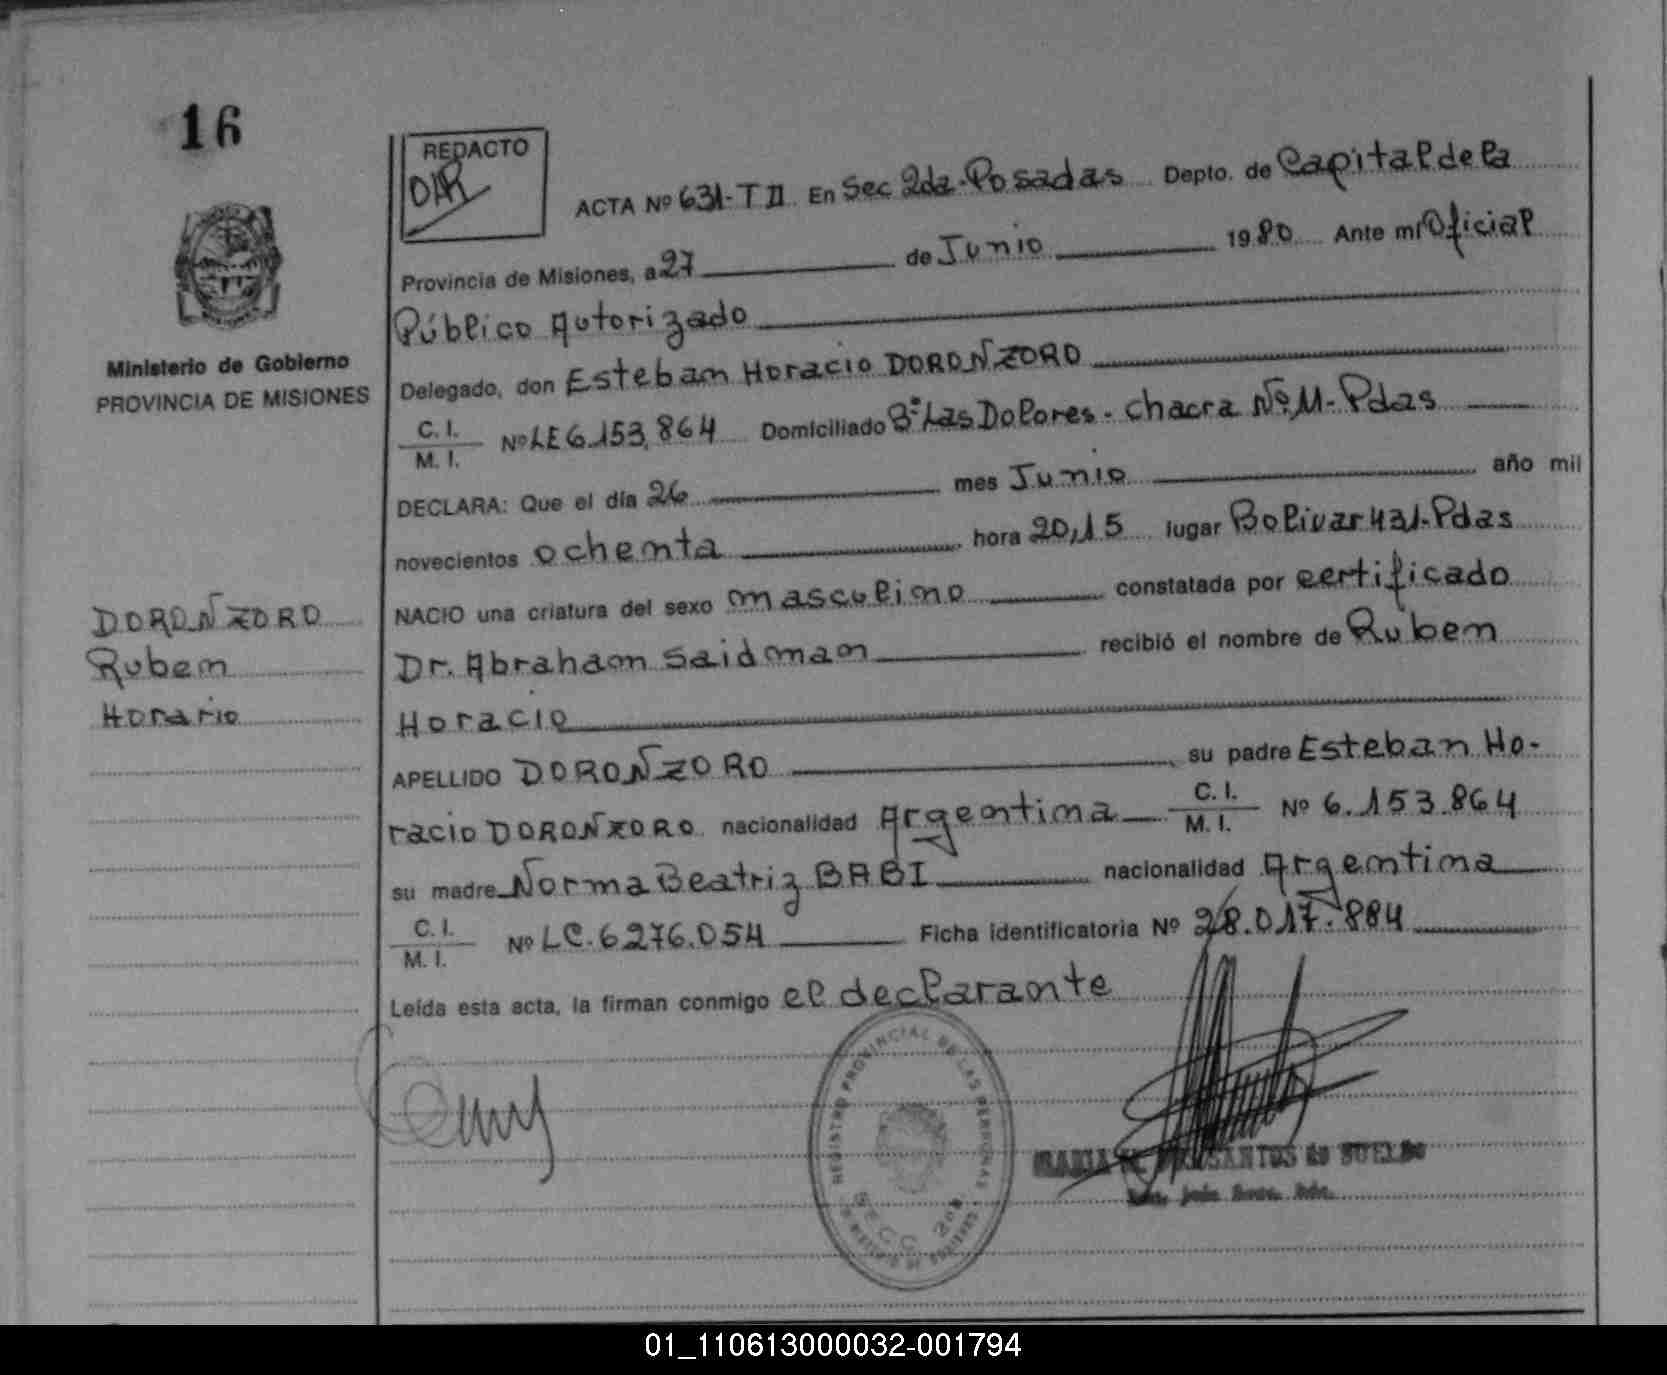 16
REDACTO
OAR
ACTA Nº 631-T II En Sec 2da-Posadas Depto. de Capital de la
Provincia de Misiones, a 27 de Junio 1980 Ante mí Oficial
Público Autorizado
Ministerio de Gobierno
PROVINCIA DE MISIONES
Delegado, don Esteban Horacio DOROÑZORO
C. I.
M. I. Nº LE 6.153.864 Domiciliado Bº Las Dolores - Chacra Nº 11 - Pdas
DECLARA: Que el día 26 mes Junio año mil
novecientos ochenta hora 20,15 lugar Bolivar 421-Pdas
DOROÑZORO
Ruben
Horario
NACIO una criatura del sexo masculino constatada por certificado
Dr. Abraham Saidman recibió el nombre de Ruben
Horacio
APELLIDO DOROÑZORO, su padre Esteban Ho-
racio DOROÑZORO nacionalidad Argentina C. I.
M. I. Nº 6.153.864
su madre Norma Beatriz BABI nacionalidad Argentina
C. I.
M. I. Nº LC. 6276.054 Ficha identificatoria Nº 28.017.884
Leída esta acta, la firman conmigo el declarante
REGISTRO PROVINCIAL DE LAS PERSONAS
SECC 2da
MARIA SANTOS de
01_110613000032-001794